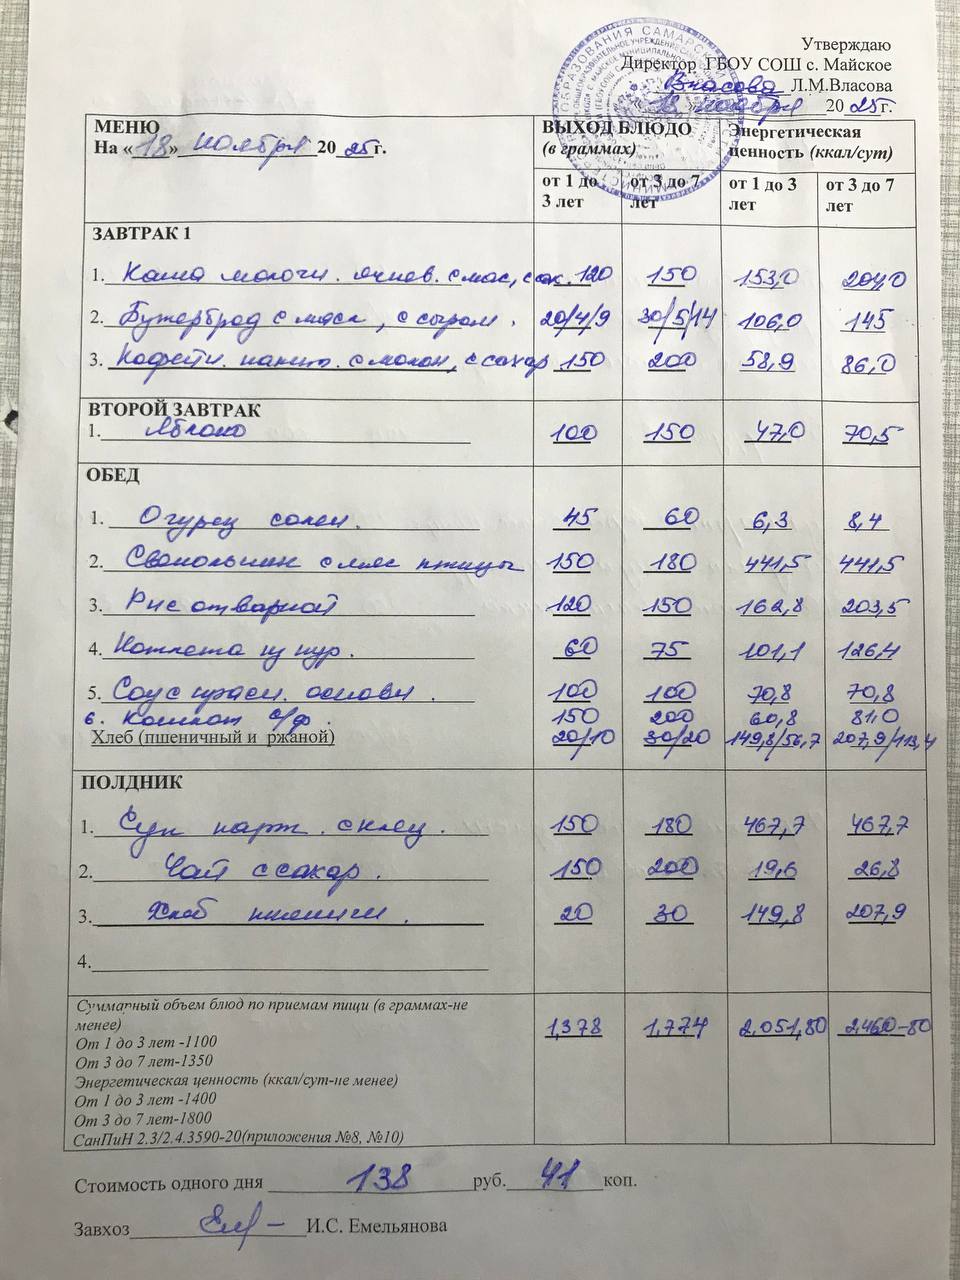 Утверждаю
Директор ГБОУ СОШ с. Майское
Власова Л.М.Власова
18 » ноября 2025г.
МЕНЮ
На «18» ноября 2025г.
ВЫХОД БЛЮДО
(в граммах)
Энергетическая
ценность (ккал/сут)
от 1 до 3 лет от 3 до 7 лет от 1 до 3 лет от 3 до 7 лет
ЗАВТРАК 1
1. Каша молочн. ячнев. с мас, сах. 120 150 153,0 204,0
2. Бутерброд с масл, с сыром. 20/4/9 30/5/14 106,0 145
3. Кофейн. напит. с молок, с сахар 150 200 58,9 86,0
ВТОРОЙ ЗАВТРАК
1. Яблоко 100 150 47,0 70,5
ОБЕД
1. Огурец солен. 45 60 6,3 8,4
2. Свекольник с мяс птицы 150 180 441,5 441,5
3. Рис отварной 120 150 162,8 203,5
4. Котлета из кур. 60 75 101,1 126,4
5. Соус красн. основн. 100 100 70,8 70,8
6. Компот с/ф. 150 200 60,8 81,0
Хлеб (пшеничный и ржаной) 20/10 30/20 149,8/56,7 207,9/113,4
ПОЛДНИК
1. Суп карт. с клец. 150 180 467,7 467,7
2. Чай с сахар. 150 200 19,6 26,8
3. Хлеб пшеничн. 20 30 149,8 207,9
4.
Суммарный объем блюд по приемам пищи (в граммах-не
менее)
1,378 1,774 2.051,80 2,460-80
От 1 до 3 лет -1100
От 3 до 7 лет-1350
Энергетическая ценность (ккал/сут-не менее)
От 1 до 3 лет -1400
От 3 до 7 лет-1800
СанПиН 2.3/2.4.3590-20(приложения №8, №10)
Стоимость одного дня 138 руб. 41 коп.
Завхоз И.С. Емельянова